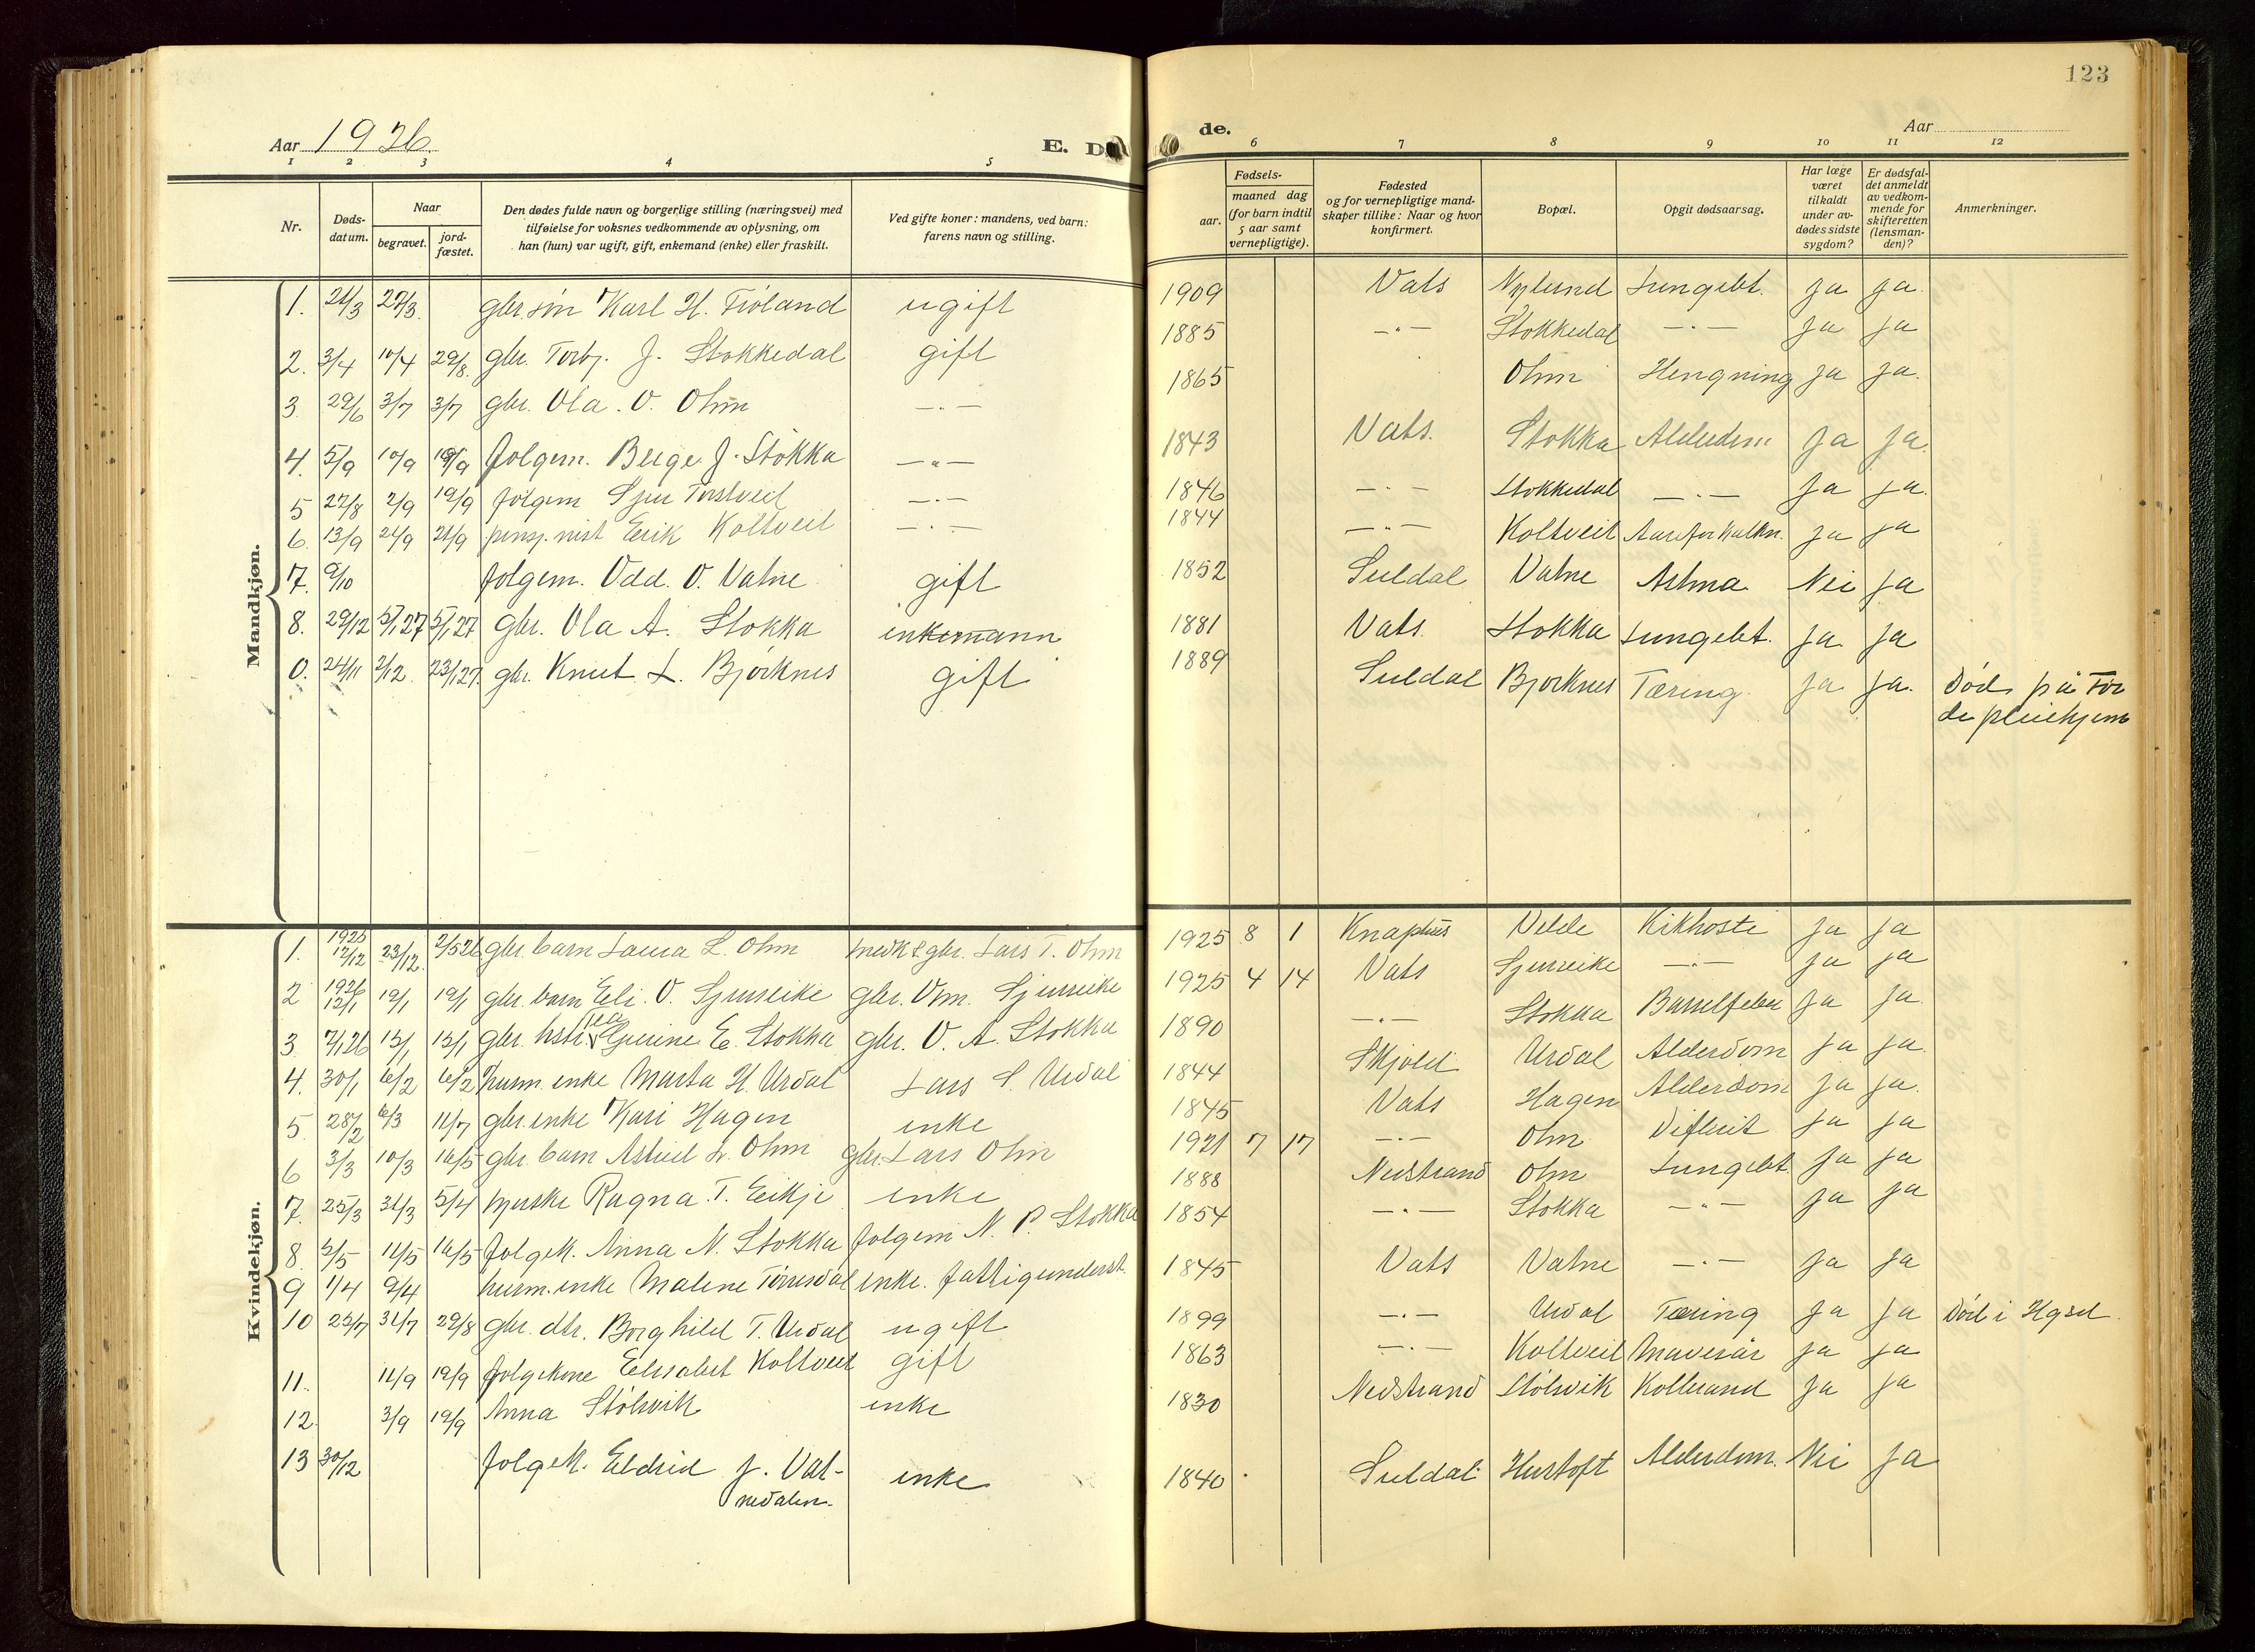 123
Aar 1926. E. Døde. Aar
1 2 3 4 5 6 7 8 9 10 11 12
Nr. Døds-datum. Naar begravet. jord-fæstet. Den dødes fulde navn og borgerlige stilling (næringsvei) med tilføielse for voksnes vedkommende av oplysning, om han (hun) var ugift, gift, enkemand (enke) eller fraskilt. Ved gifte koner: mandens, ved barn: farens navn og stilling. Fødsels- aar. maaned dag (for barn indtil 5 aar samt vernepligtige). Fødested og for vernepligtige mandskaper tillike: Naar og hvor konfirmert. Bopæl. Opgit dødsaarsag. Har læge været tilkaldt under avdødes sidste sygdom? Er dødsfaldet anmeldt av vedkommende for skifteretten (lensmanden)? Anmerkninger.
Mandkjøn.
1. 21/3 27/3. gbr. søn Karl H. Tioland ugift 1909 Vats Nylund Lungebt. Ja Ja.
2. 3/4 10/4 29/8. gbr. Torbj. J. Stokkedal gift 1885 —"— Stokkedal —"— Ja Ja
3 29/6 3/7 3/7 gbr. Ola. O. Ohm —"— 1865 Ohm Hengning Ja Ja.
4. 5/9 10/9 19/9 folgem. Berge J. Stokka —"— 1843 Vats. Stokka Alderdom Ja Ja.
5 27/8 2/9 19/9 folgem Sjur Torstveit —"— 1846 —"— Stokkedal —"— Ja Ja.
6. 13/9 21/9 21/9 pensj. nist Erik Koltveit —"— 1844 —"— Koltveit Aareforkalkn. Ja Ja
7. 9/10 folgem. Odd. O. Vatne gift 1852 Suldal Vatne Astma Nei Ja
8. 29/12 5/1 27 5/1 27 gbr. Ola A. Stokka enkemann 1881 Vats. Stokka Lungebt. Ja Ja
0. 24/11 2/12. 23/1 27. gbr. Knut L. Bjørknes gift 1889 Suldal Bjorknes Tæring. Ja Ja. Død på Før
de pleiehjem
Kvindekjøn.
1. 1925 12/12 23/12. 2/5 26 gbr. barn Laura L. Ohm gbr. Lars T. Ohm 1925 8 1 Knaphus Velde Kikhoste Ja Ja
2 1926 12/1 19/1 19/1 gbr. barn Eli. O. Sjurseike gbr. Om. Sjurseike 1925 4 14 Vats Sjurseike —"— Ja Ja
3 7/1 26 13/1 13/1 gbr. hstr. Gurine E. Stokka gbr. O. A. Stokka 1890 —"— Stokka Barselfeber Ja Ja.
4. 30/1 6/2 6/2 husm. enke Marta H. Urdal Lars S. Urdal 1844 Skjold Urdal Alderdom Ja Ja.
5 28/2 6/3 11/7 gbr. enke Kari Hagen enke 1845 Vats Hagen Alderdom Ja Ja.
6 3/3 10/3 16/5 gbr. barn Astrid L. Ohm gbr. Lars Ohm 1921 7 17 —"— Ohm Difterit Ja Ja
7. 25/3 31/3 5/4 Ragna. T. Eikje enke 1888 Nedstrand Ohm Lungebt. Ja Ja
8. 5/5 11/5 16/5 folgek. Anna N. Stokka folgem N. P. Stokka 1854 —"— Stokka —"— Ja Ja
9 1/4 9/4 husm. enke Malene Tørresdal enke. fattigunderst. 1845 Vats Vatne —"— Ja Ja
10 25/7 31/7 29/8 gbr. dtr. Borghild T. Urdal ugift 1899 —"— Urdal Tæring Ja Ja Død i Hgsd.
11. 11/9 19/9 folgekone Elisabet Koltveit gift 1863 —"— Koltveit Mavesår Ja Ja
12. 3/9 19/9 Anna Stølsvik enke 1830 Nedstrand Stølsvik Kolbrand Ja Ja
13 30/12 folgek. Eldrid J. Vat-
nedalen. enke 1840 Suldal Hustoft Alderdom. Nei Ja